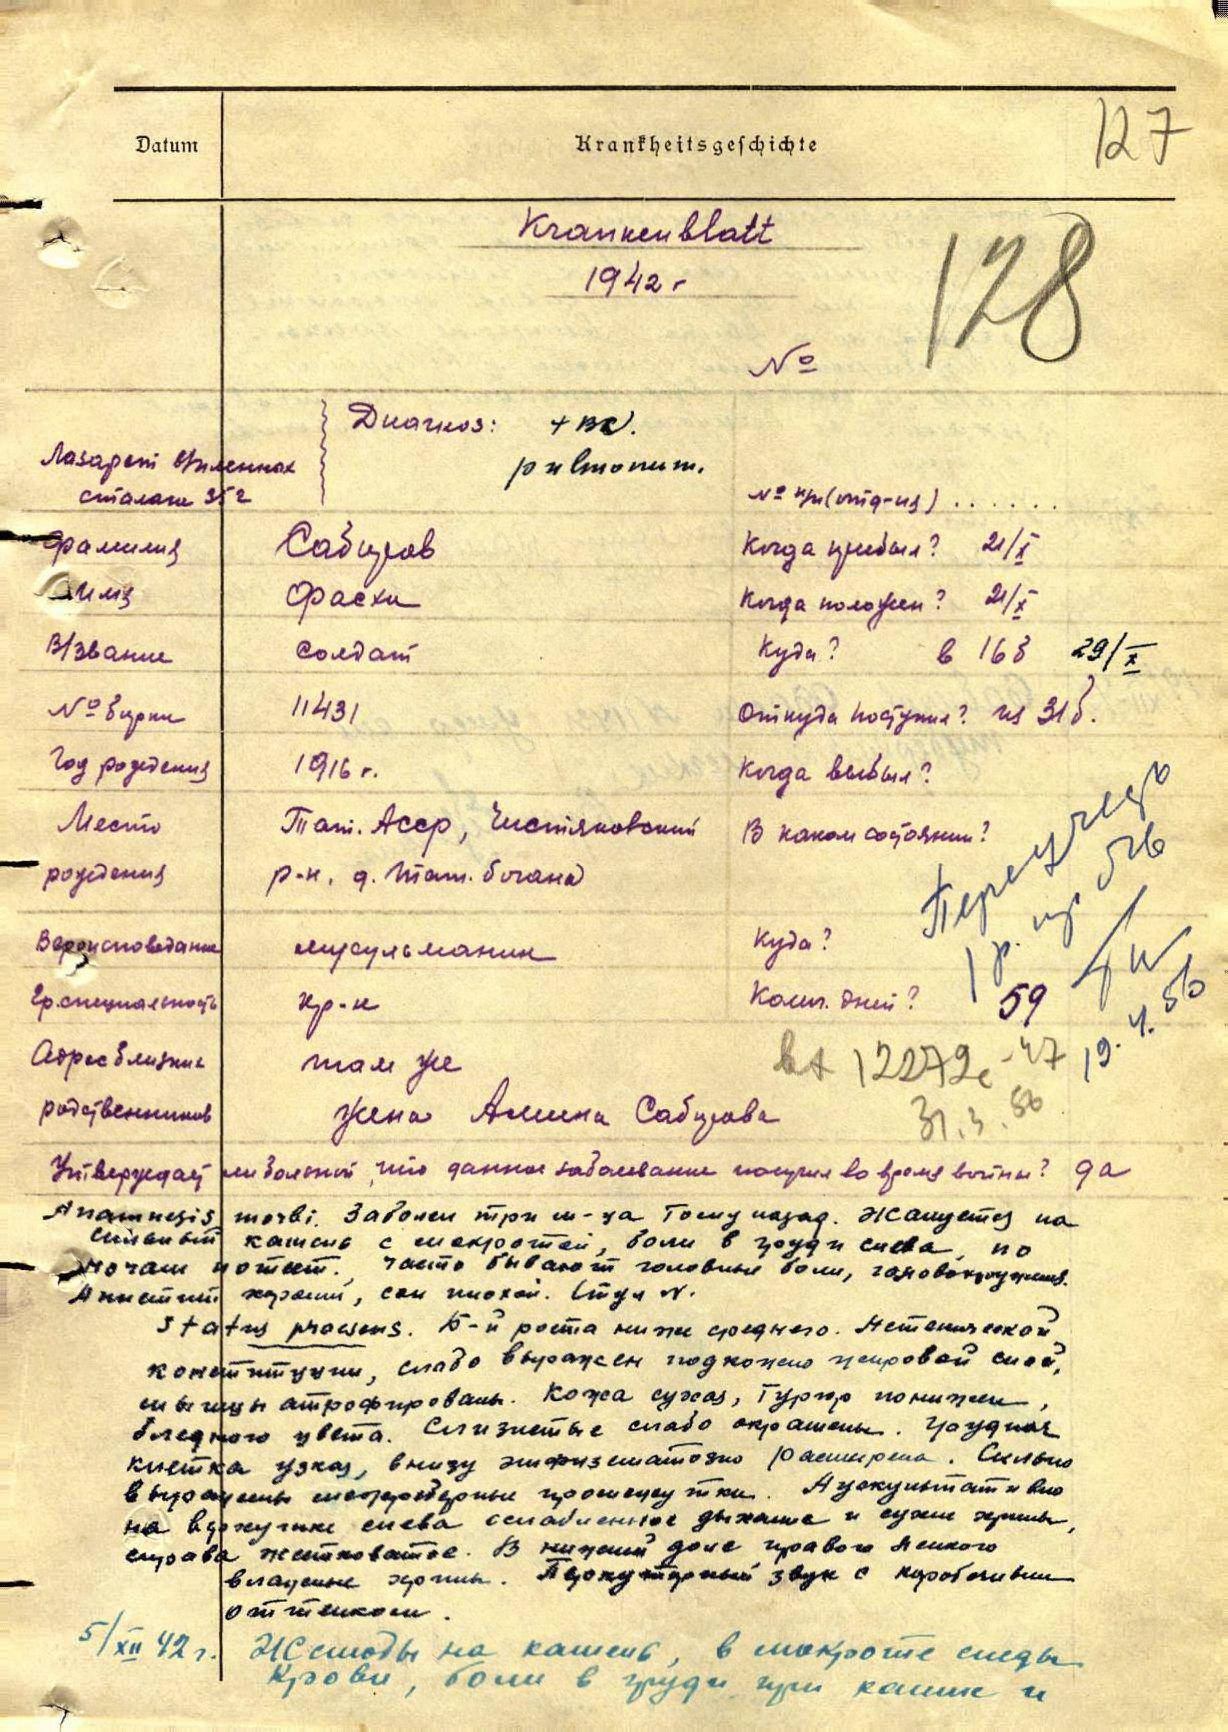 127
Datum Krankheitsgeschichte
Krankenblatt
1942 г
128
№
Диагноз: tbc.
pulmonum.
Лазарет
сталага 352
№ (отд-ия) . . . . . .
Фамилия Сабиров Когда прибыл? 21/X
Имя Фасхи Когда положен? 21/X
В/звание солдат Куда? в 16б 29/X
№ бирки 11431 Откуда поступил? из 31б.
Год рождения 1916 г. Когда выбыл?
Место Тат. Асср, Чистяковский В каком состоянии?
рождения р-н, д. Тат.
Вероисповедание мусульманин Куда?
Гр.специальность кр-н Колич. дней? 59
19.4.56
Адрес близких там же вх 12272с -47
31.3.56
родственников жена Амина Сабирова
Утверждает ли больной, что данное заболевание получил во время войны? да
Anamnesis morbi. Заболел три м-ца тому назад. Жалуется на
сильный кашель с мокротой, боли в груди слева, по
ночам потеет., часто бывают головные боли, головокружения.
Аппетит хороший, сон плохой. Стул N.
Status praesens. Б-й роста ниже среднего. Астенической
конституции, слабо выражен подкожно жировой слой,
мышцы атрофированы. Кожа сухая, Тургор понижен,
бледного цвета. Слизистые слабо окрашены. Грудная
клетка узкая, внизу эмфизематозно расширена. Сильно
выражены межреберные промежутки. Аускультативно
на верхушке слева ослабленное дыхание и сухие хрипы,
справа жестковатое. В нижней доле правого легкого
влажные хрипы. Перкуторный звук с коробочным
оттенком.
5/XII 42 г. Жалобы на кашель, в мокроте следы
крови, боли в груди при кашле и